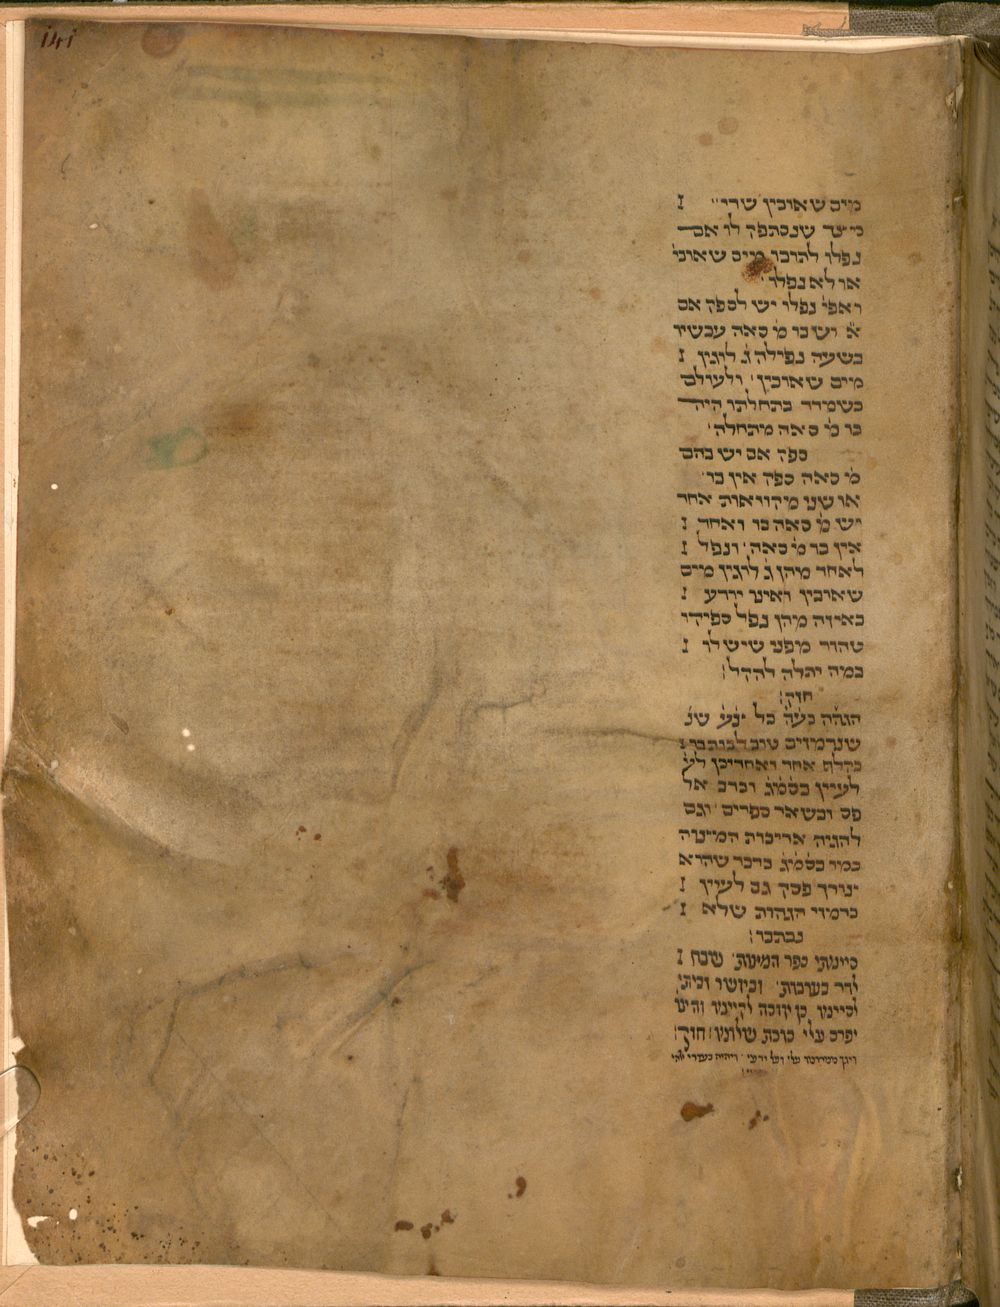 141
מים שאובין שרי׳׳
כיצד שנסתפק לו אם
נפלו לתוכו מים שאובי׳
או לא נפלו׳
ואפי׳ נפלו יש לספק אם
יש בו מ׳ סאה עכשיו
בשעה נפילה ג׳ לוגין
מים שאובין׳ ולעולם
כשמדד בתחלתו היה
בו מ׳ סאה מתחלה׳
ספק אם יש בהם
מ׳ סאה ספק אין בו׳
או שני מקוואות אחד
יש מ׳ סאה בו ואחד
אין בו מ׳ סאה׳ ונפל
לאחד מהן ג׳ לוגין מים
שאובין ואינו יודע
באיזה מהן נפל ספיקו
טהור מפני שיש לו
במה יתלה להקל׳
חזק׳
הגהה כל
שנרמזים טוב
אחד
לעיין בסמ״ג וברב אל
פס ובשאר ספרים׳ וגם
להגיה אריכות המצוה
כמו בסמ״ג בדבר שהוא
צורך פסק גם לעיין
ברמזי הגהות שלא
נכתבו׳
סיימתי ספר המצות׳ שבח
לדר בערבות׳
לסיימו כן יזכה לקיימו
יפרס עלי סוכת שלומו׳ חזק׳